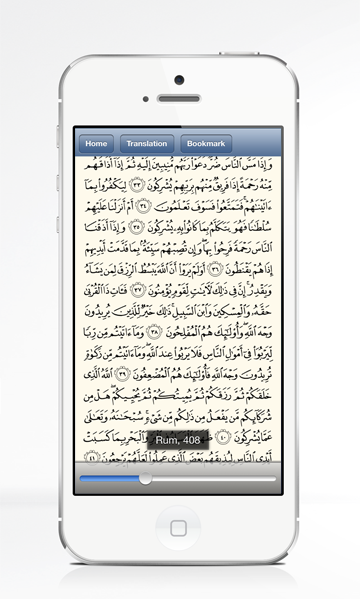 Home Translation Bookmark
وَإِذَا مَسَّ ٱلنَّاسَ ضُرٌّ دَعَوْا۟ رَبَّهُم مُّنِيبِينَ إِلَيْهِ ثُمَّ إِذَآ أَذَاقَهُم
مِّنْهُ رَحْمَةً إِذَا فَرِيقٌ مِّنْهُم بِرَبِّهِمْ يُشْرِكُونَ ٣٣ لِيَكْفُرُوا۟ بِمَآ
ءَاتَيْنَٰهُمْ فَتَمَتَّعُوا۟ فَسَوْفَ تَعْلَمُونَ ٣٤ أَمْ أَنزَلْنَا عَلَيْهِمْ
سُلْطَٰنًا فَهُوَ يَتَكَلَّمُ بِمَا كَانُوا۟ بِهِۦ يُشْرِكُونَ ٣٥ وَإِذَآ أَذَقْنَا
ٱلنَّاسَ رَحْمَةً فَرِحُوا۟ بِهَا وَإِن تُصِبْهُمْ سَيِّئَةٌۢ بِمَا قَدَّمَتْ أَيْدِيهِمْ
إِذَا هُمْ يَقْنَطُونَ ٣٦ أَوَلَمْ يَرَوْا۟ أَنَّ ٱللَّهَ يَبْسُطُ ٱلرِّزْقَ لِمَن يَشَآءُ
وَيَقْدِرُ إِنَّ فِى ذَٰلِكَ لَءَايَٰتٍ لِّقَوْمٍ يُؤْمِنُونَ ٣٧ فَـَٔاتِ ذَا ٱلْقُرْبَىٰ
حَقَّهُۥ وَٱلْمِسْكِينَ وَٱبْنَ ٱلسَّبِيلِ ذَٰلِكَ خَيْرٌ لِّلَّذِينَ يُرِيدُونَ
وَجْهَ ٱللَّهِ وَأُو۟لَٰٓئِكَ هُمُ ٱلْمُفْلِحُونَ ٣٨ وَمَآ ءَاتَيْتُم مِّن رِّبًا
لِّيَرْبُوَا۟ فِىٓ أَمْوَٰلِ ٱلنَّاسِ فَلَا يَرْبُوا۟ عِندَ ٱللَّهِ وَمَآ ءَاتَيْتُم مِّن زَكَوٰةٍ
تُرِيدُونَ وَجْهَ ٱللَّهِ فَأُو۟لَٰٓئِكَ هُمُ ٱلْمُضْعِفُونَ ٣٩ ٱللَّهُ ٱلَّذِى
خَلَقَكُمْ ثُمَّ رَزَقَكُمْ ثُمَّ يُمِيتُكُمْ ثُمَّ يُحْيِيكُمْ هَلْ مِن
شُرَكَآئِكُم مَّن يَفْعَلُ مِن ذَٰلِكُم مِّن شَىْءٍ سُبْحَٰنَهُۥ وَتَعَٰلَىٰ
عَمَّا يُشْرِكُونَ ٤٠ وَٱلْبَحْرِ بِمَا كَسَبَتْ
Rum, 408
أَيْدِى ٱلنَّاسِ لِيُذِيقَهُم بَعْضَ ٱلَّذِى عَمِلُوا۟ لَعَلَّهُمْ يَرْجِعُونَ ٤١